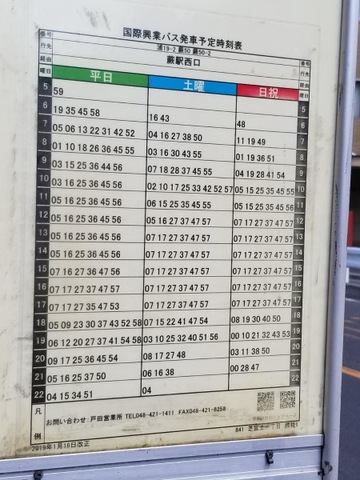 国際興業バス発車予定時刻表
番号 浦19-2 蕨50 蕨50-2 番号
行先 行先
経由 蕨駅西口 経由
曜日 平日 土曜 日祝 曜日
5 59 5
6 19 35 45 58 16 43 48 6
7 05 06 13 22 31 42 52 04 16 27 38 50 11 19 49 7
8 01 10 18 26 36 45 55 03 16 30 43 55 01 19 36 51 8
9 03 15 25 36 44 56 07 18 28 37 45 55 04 19 28 41 54 9
10 03 16 25 36 45 56 02 10 17 25 33 42 52 57 05 15 25 35 45 55 10
11 03 16 25 36 45 56 06 15 25 35 45 55 05 15 25 35 45 55 11
12 05 16 25 36 45 56 05 16 27 37 47 57 07 17 27 37 47 57 12
13 05 16 25 36 45 56 07 17 27 37 47 57 07 17 27 37 47 57 13
14 05 16 25 36 45 56 07 17 27 37 47 57 07 17 27 37 47 57 14
15 07 16 27 36 47 56 07 17 27 37 47 57 07 17 27 37 47 57 15
16 07 16 27 36 47 57 07 17 27 37 47 57 07 17 27 37 47 57 16
17 07 17 27 35 47 53 07 17 27 37 47 57 07 17 27 37 47 57 17
18 05 09 23 30 37 43 52 58 07 15 22 41 47 54 08 19 30 40 50 18
19 06 12 20 27 37 41 54 58 03 10 25 32 40 51 56 00 10 21 32 43 53 19
20 09 17 25 36 45 54 08 17 27 48 03 11 38 50 20
21 05 16 25 37 50 06 16 38 00 28 47 21
22 04 15 34 51 04 22
凡例
お問い合わせ 戸田営業所 TEL048-421-1411 FAX048-421-8258
2019年1月16日改正